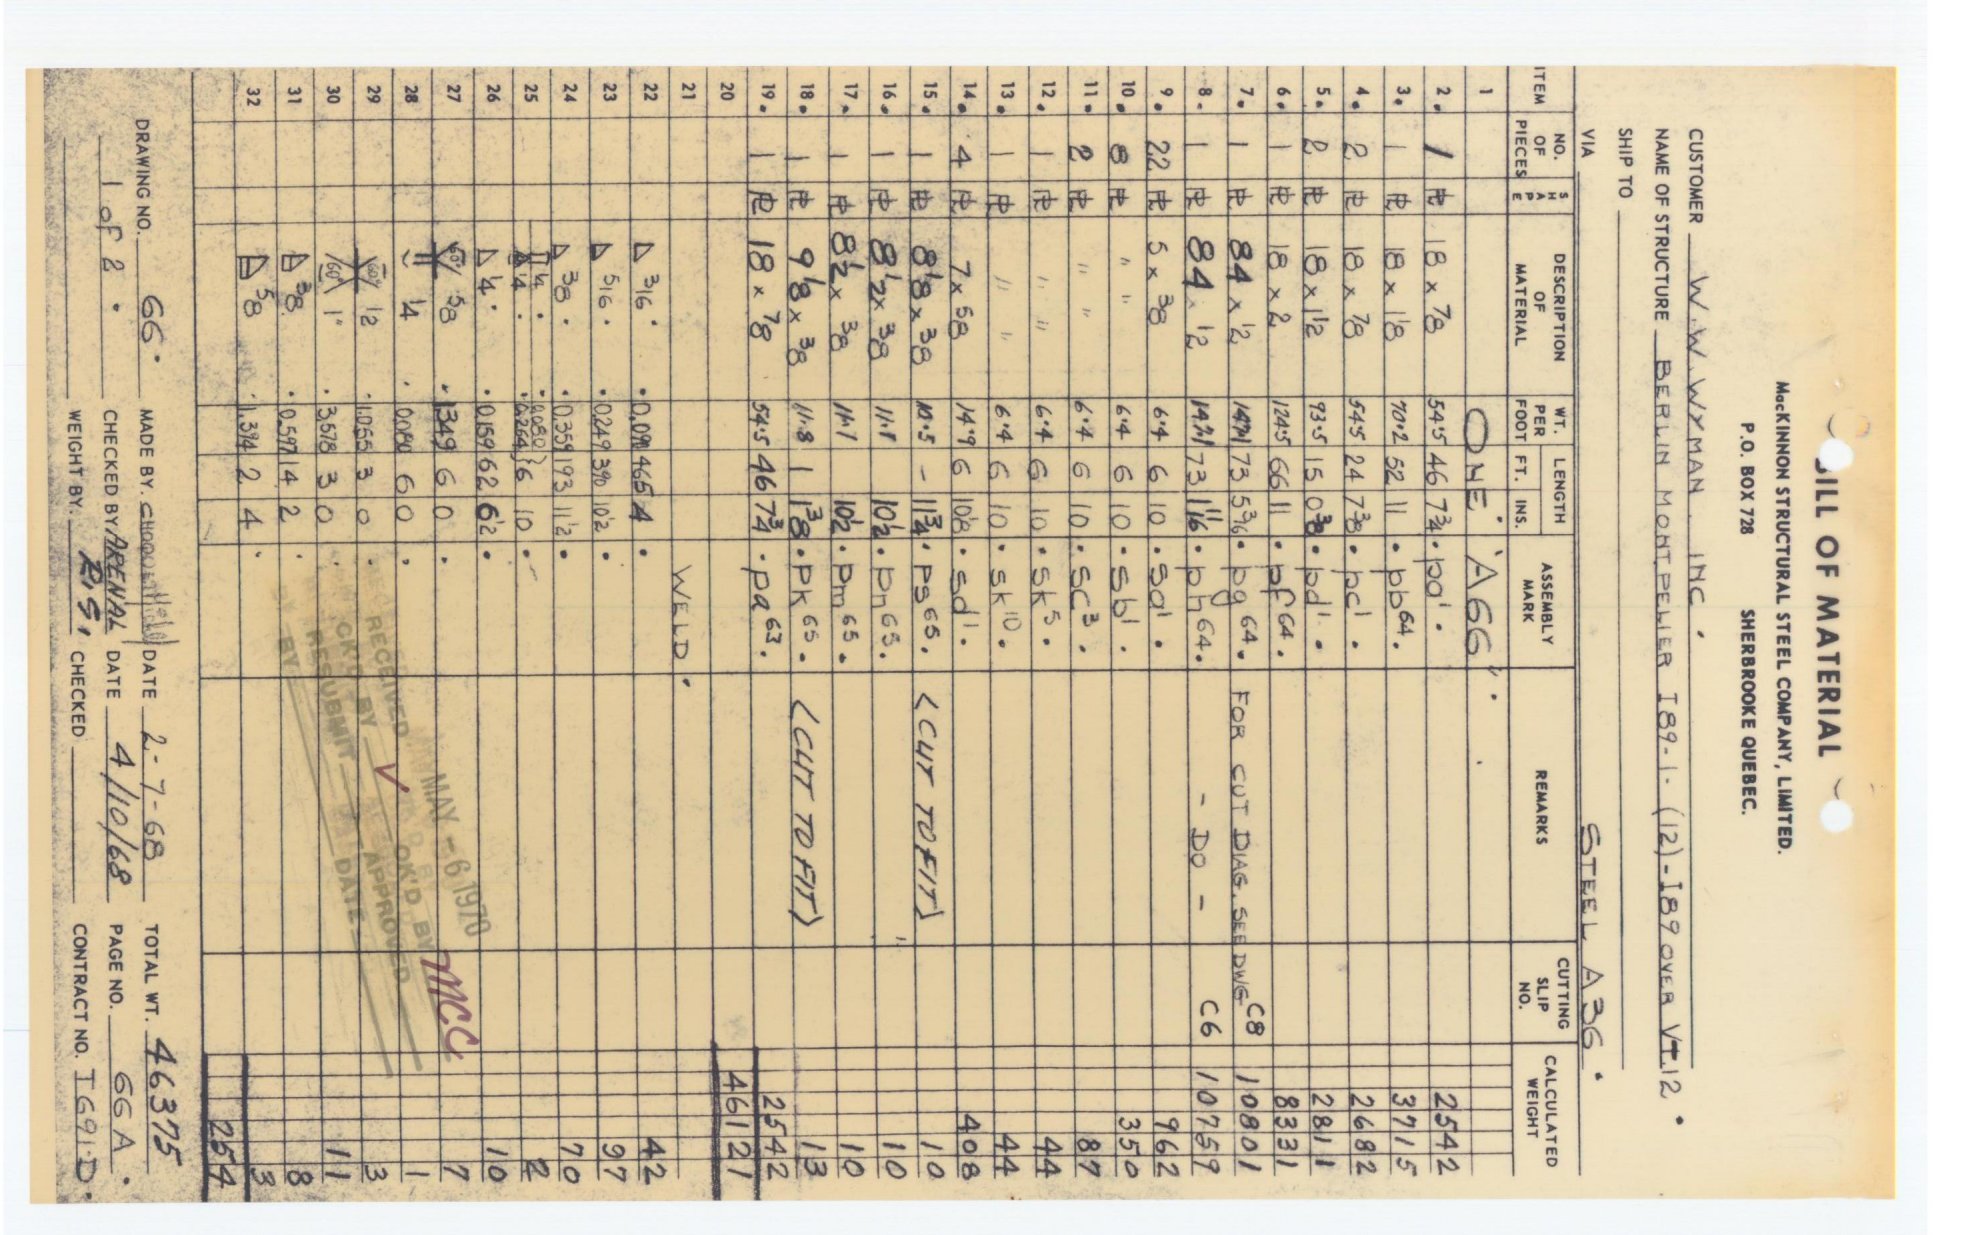 BILL OF MATERIAL
MacKINNON STRUCTURAL STEEL COMPANY, LIMITED.
P.O. BOX 728 SHERBROOKE QUEBEC.
CUSTOMER W. W. WYMAN. INC.
NAME OF STRUCTURE BERLIN MONTPELIER I89-1-(12)-I89 OVER Vt.12.
SHIP TO
VIA STEEL A36.
ITEM NO. OF PIECES SHAPE DESCRIPTION OF MATERIAL WT. PER FOOT LENGTH FT. INS. ASSEMBLY MARK REMARKS CUTTING SLIP NO. CALCULATED WEIGHT
1 ONE. "A66".
2. 1 PL 18 x 7/8 54.5 46 7 3/4. pa1. 2542
3. 1 PL 18 x 1 1/8 70.2 52 11. pb64. 3715
4. 2 PL 18 x 7/8 54.5 24 7 3/8. pc1. 2682
5. 2 PL 18 x 1 1/2 93.5 15 0 3/8. pd1. 2811
6. 1 PL 18 x 2 124.5 66 11. pf64. 8331
7. 1 PL 84 x 1/2 147.1 73 5 3/16. pg64. FOR CUT DIAG. SEE DWG C8 10801
8. 1 PL 84 x 1/2 147.1 73 1 1/16. ph64. - DO - C6 10759
9. 22 PL 5 x 3/8 6.4 6 10. sa1. 962
10. 8 PL " " 6.4 6 10. sb1. 350
11. 2 PL " " 6.4 6 10. sc3. 87
12. 1 PL " " 6.4 6 10. sk5. 44
13. 1 PL " " 6.4 6 10. sk10. 44
14. 4 PL 7 x 5/8 14.9 6 10 1/8. sd1. 408
15. 1 PL 8 1/8 x 3/8 10.5 - 11 3/4. ps65. <CUT TO FIT> 10
16. 1 PL 8 1/2 x 3/8 11.1 10 1/2. pn65. 10
17. 1 PL 8 1/2 x 3/8 11.1 10 1/2. pm65. 10
18. 1 PL 9 1/8 x 3/8 11.8 1 1 3/8. pk65. <CUT TO FIT> 13
19. 1 PL 18 x 7/8 54.5 46 7 3/4. pa63. 2542
20 46121
21 WELD.
22 3/16. 0.091 465 4. 42
23 5/16. 0.249 390 10 1/2. 97
24 3/8. 0.359 193 11 1/2. 70
25 1/4. 1/4. 0.080 0.264 } 6 10. 2
26 1/4. 0.159 62 6 1/2. 10
27 60° 5/8 1.349 6 0. 7
28 1/4 0.080 6 0. 1
29 60° 1/2 1.055 3 0. 3
30 60° 1" 3.578 3 0. 11
31 3/8. 0.597 14 2. 8
32 5/8 1.394 2 4. 3
254
RECEIVED MAY - 6 1970
CK'D BY OK'D BY MCC
RESUBMIT APPROVED
BY DATE
DRAWING NO. 66. MADE BY. DATE 2-7-68 TOTAL WT. 46375
1 of 2. CHECKED BY ARENAL DATE 4/10/68 PAGE NO. 66 A.
WEIGHT BY. R.S. CHECKED CONTRACT NO. I691.D.